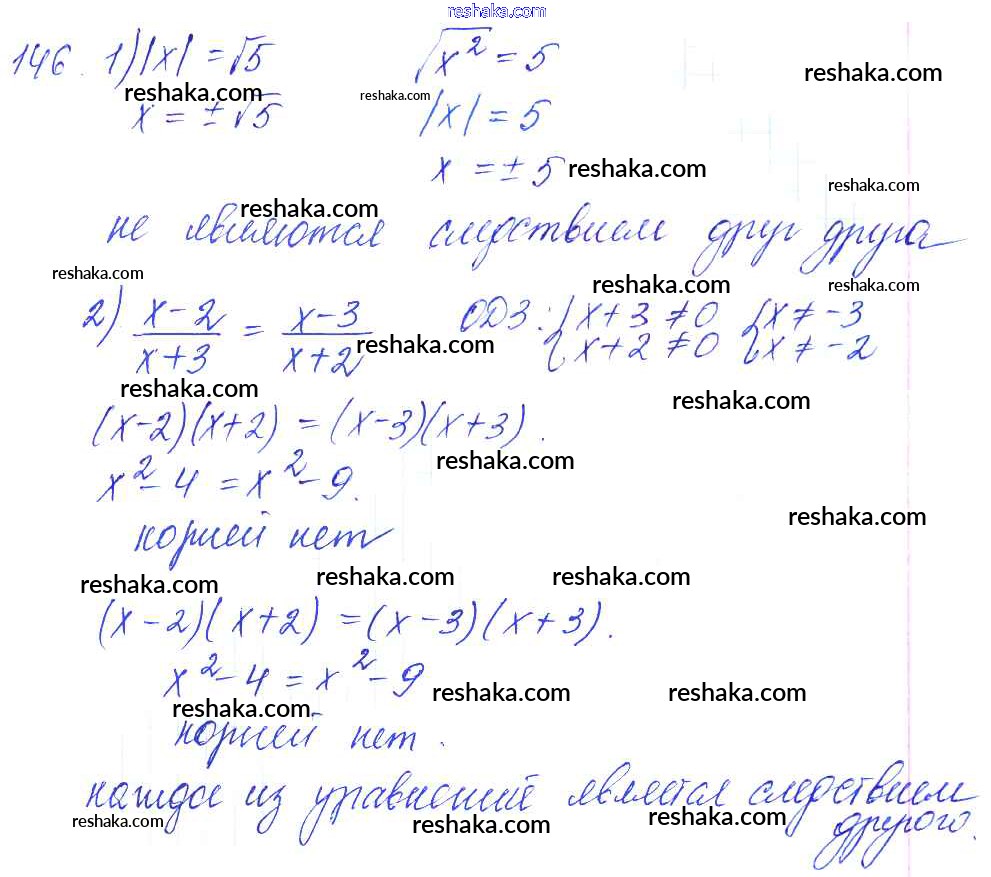 reshaka.com
146. 1) |x| = √5 √x² = 5
reshaka.com reshaka.com reshaka.com
x = ± √5 |x| = 5
x = ± 5 reshaka.com
reshaka.com reshaka.com
не являются следствием друг друга
reshaka.com reshaka.com reshaka.com
2) (x-2)/(x+3) = (x-3)/(x+2) ОДЗ: { x+3 ≠ 0 { x ≠ -3
{ x+2 ≠ 0 { x ≠ -2
reshaka.com
reshaka.com reshaka.com
(x-2)(x+2) = (x-3)(x+3).
reshaka.com
x² - 4 = x² - 9.
reshaka.com
корней нет
reshaka.com reshaka.com reshaka.com
(x-2)(x+2) = (x-3)(x+3).
x² - 4 = x² - 9
reshaka.com reshaka.com
reshaka.com
корней нет.
каждое из уравнений является следствием
reshaka.com reshaka.com reshaka.com
другого.